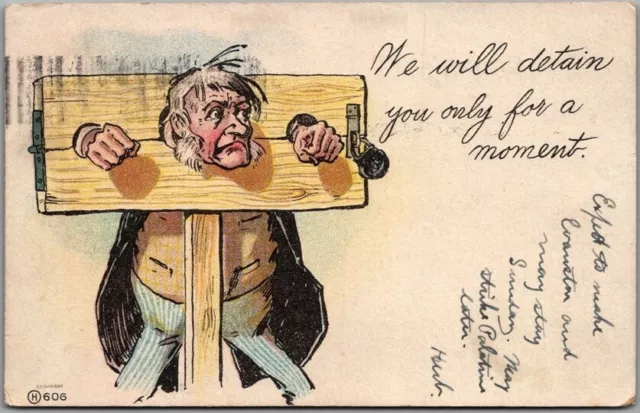 We will detain
you only for a
moment.
Expect to make
Evanston and
may stay
Sunday. May
strike Palatine
later.
Herb.
COPYRIGHT
H 606